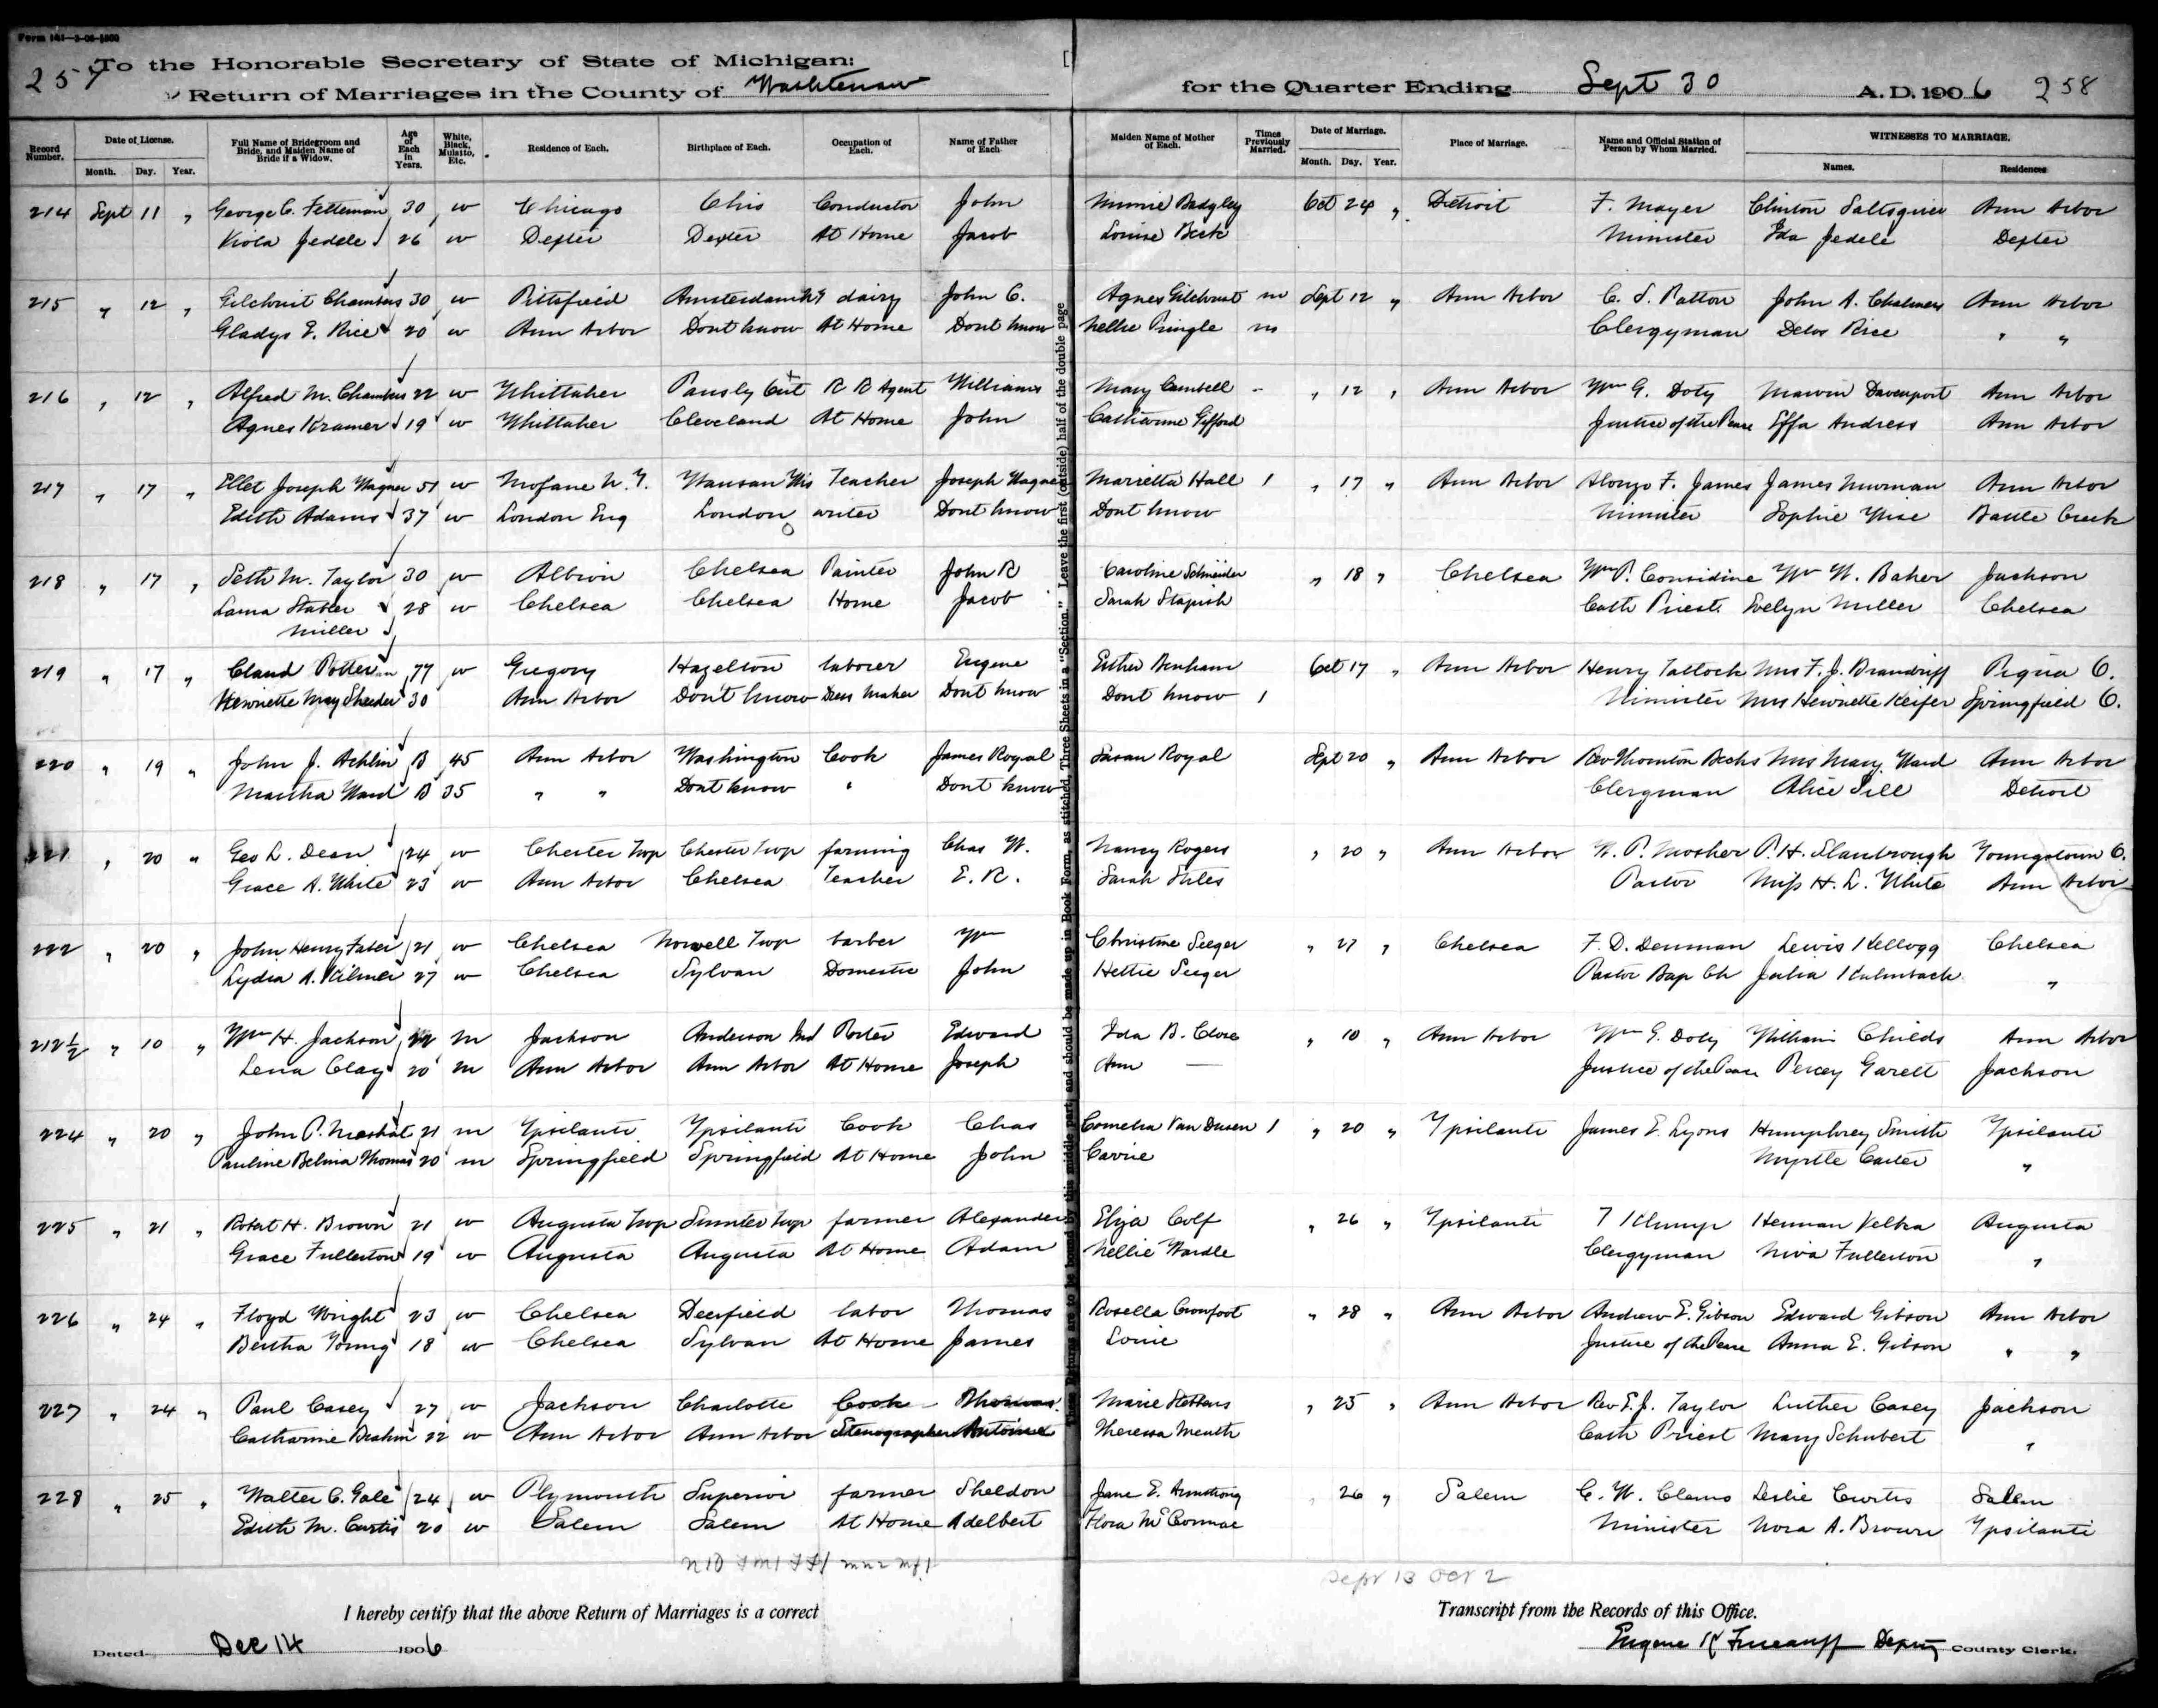 Form 141—3-06-1500
To the Honorable Secretary of State of Michigan:
257
Return of Marriages in the County of Washtenaw
for the Quarter Ending Sept 30 A. D. 1906 258
Record Number. Date of License. Month. Day. Year. Full Name of Bridegroom and Bride, and Maiden Name of Bride if a Widow. Age of Each in Years. White, Black, Mulatto, Etc. Residence of Each. Birthplace of Each. Occupation of Each. Name of Father of Each. Maiden Name of Mother of Each. Times Previously Married. Date of Marriage. Month. Day. Year. Place of Marriage. Name and Official Station of Person by Whom Married. WITNESSES TO MARRIAGE. Names. Residences
214 Sept 11 " George C. Fetteman 30 w Chicago Ohio Conductor John Minnie Badgley Oct 24 " Detroit F. Mayer Clinton Saltsgiver Ann Arbor
Viola Jedele 26 w Dexter Dexter At Home Jacob Louise Beck Minister Ida Jedele Dexter
215 " 12 " Gilchrist Chambers 30 w Pittsfield Amsterdam NY dairy John C. Agnes Gilchrist no Sept 12 " Ann Arbor C. S. Patton John A. Chalmers Ann Arbor
Gladys E. Rice 20 w Ann Arbor Dont know At Home Dont know Nellie Pringle no Clergyman Delos Rice " "
216 " 12 " Alfred M. Chambers 22 w Whittaker Ont R R Agent William Mary - " 12 " Ann Arbor Wm G. Doty Marvin Davenport Ann Arbor
Agnes Kramer 19 w Whittaker Cleveland At Home John Catherine Gifford Justice of the Peace Effa Andress Ann Arbor
217 " 17 " Ellet Joseph Wagner 51 w N. Y. Wausau Wis Teacher Joseph Wagner Marietta Hall 1 " 17 " Ann Arbor Alonzo F. James James Murman Ann Arbor
Edith Adams 37 w London Eng London writer Dont know Dont know Minister Sophie Wise Battle Creek
218 " 17 " Seth M. Taylor 30 w Albion Chelsea Painter John R Caroline Schneider " 18 " Chelsea Wm P. Considine Wm W. Baker Jackson
Lama Staber 28 w Chelsea Chelsea Home Jacob Sarah Stapish Cath Priest Evelyn Miller Chelsea
Miller
219 " 17 " Claud Potter 77 w Gregory Hazelton laborer Eugene Esther Benham Oct 17 " Ann Arbor Henry Tatlock Mrs F. J. Brandriff Piqua O.
Henriette May Sheeder 30 Ann Arbor Don't know Dress Maker Dont know Dont know 1 Minister Mrs Henriette Keifer Springfield O.
220 " 19 " John J. Achlin B 45 Ann Arbor Washington Cook James Royal Susan Royal Sept 20 " Ann Arbor Rev Thornton Becks Mrs Mary Ward Ann Arbor
Martha Ward B 35 " " Dont know " Dont know Clergman Alice Sill Detroit
221 " 20 " Geo L. Dean 24 w Chester Twp Chester Twp farming Chas W. Nancy Rogers " 20 " Ann Arbor W. P. Mosher P. H. Slanbrough Youngstown O.
Grace A. White 23 w Ann Arbor Chelsea Teacher E. R. Sarah Stiles Pastor Miss H. L. White Ann Arbor
222 " 20 " John Henry Faber 21 w Chelsea Norvell Twp barber Wm Christine Seeger " 27 " Chelsea F. D. Denman Lewis Kellogg Chelsea
Lydia A. Kilmer 27 w Chelsea Sylvan Domestic John Hettie Seeger Pastor Bap Ch Julia Kalmbach "
212½ " 10 " Wm H. Jackson 22 m Jackson Anderson Ind Porter Edward Ida B. Close " 10 " Ann Arbor Wm G. Doty William Childs Ann Arbor
Lena Clay 20 m Ann Arbor Ann Arbor At Home Joseph Ann — Justice of the Peace Percey Garett Jackson
224 " 20 " John P. Mashat 21 m Ypsilanti Ypsilanti Cook Chas Cornelia Van Dusen 1 " 20 " Ypsilanti James E. Lyons Humphrey Smith Ypsilanti
Pauline Belina Thomas 20 m Springfield Springfield At Home John Carrie Myrtle Carter "
225 " 21 " Robert H. Brown 21 w Augusta Twp Sumter Twp farmer Alexander Eliza Colf " 26 " Ypsilanti 7 Klump Herman Velka Augusta
Grace Fullerton 19 w Augusta Augusta At Home Adam Nellie Wardle Clergyman Niva Fullerton "
226 " 24 " Floyd Wright 23 w Chelsea Deerfield labor Thomas Rosella Crowfoot " 28 " Ann Arbor Andrew E. Gibson Edward Gibson Ann Arbor
Bertha Young 18 w Chelsea Sylvan At Home James Louie Justice of the Peace Anna E. Gibson " "
227 " 24 " Paul Casey 27 w Jackson Charlotte Cook Thomas Marie Stebbens " 25 " Ann Arbor Rev E. J. Taylor Luther Casey Jackson
Catharine Brahm 22 w Ann Arbor Ann Arbor Stenographer Antoine Theressa Meuth Cath Priest Mary Schubert "
228 " 25 " Walter C. Gale 24 w Plymouth Superior farmer Sheldon Jane E. Armstrong " 26 " Salem C. W. Clemo Leslie Curtis Salem
Edith M. Curtis 20 w Salem Salem At Home Adelbert Flora McCormac Minister Nora A. Brown Ypsilanti
Sept 13 Oct 2
I hereby certify that the above Return of Marriages is a correct Transcript from the Records of this Office.
Dated Dec 14 1906
Eugene K Frueauff Deputy County Clerk.
These Returns are to be bound by this middle part, and should be made up in Book Form, as stitched, Three Sheets in a "Section." Leave the first (outside) half of the double page